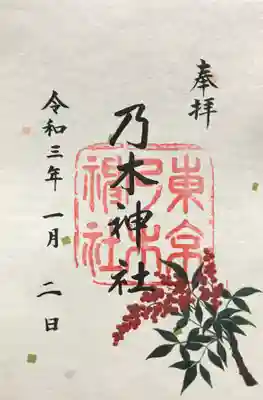 奉拝
東京
乃木
神社
乃木神社
令和三年 一月 二日